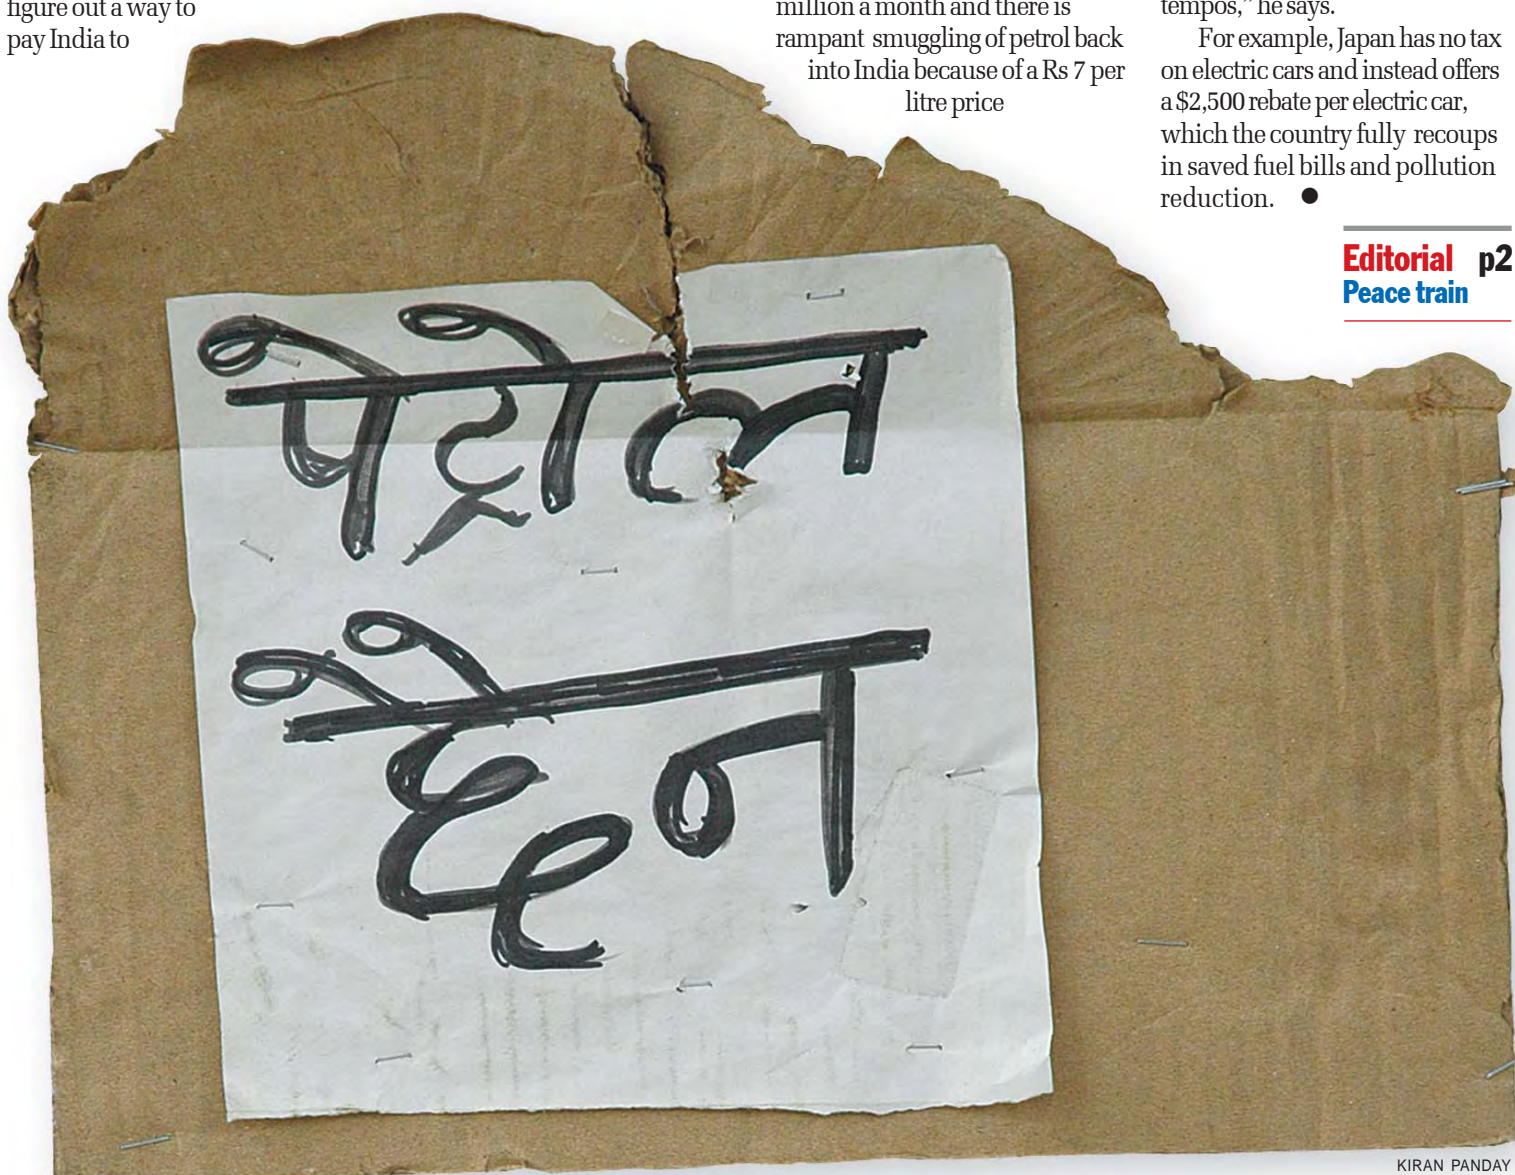 figure out a way to
pay India to
million a month and there is
rampant smuggling of petrol back
into India because of a Rs 7 per
litre price
tempos," he says.
For example, Japan has no tax
on electric cars and instead offers
a $2,500 rebate per electric car,
which the country fully recoups
in saved fuel bills and pollution
reduction. ●
Editorial p2
Peace train
पेट्रोल
छैन
KIRAN PANDAY